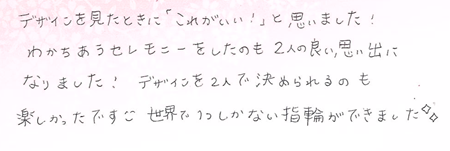 デザインを見たときに「これがいい！」と思いました！
わかちあうセレモニーをしたのも2人の良い思い出に
なりました！ デザインを2人で決められるのも
楽しかったです 世界で1つしかない指輪ができました